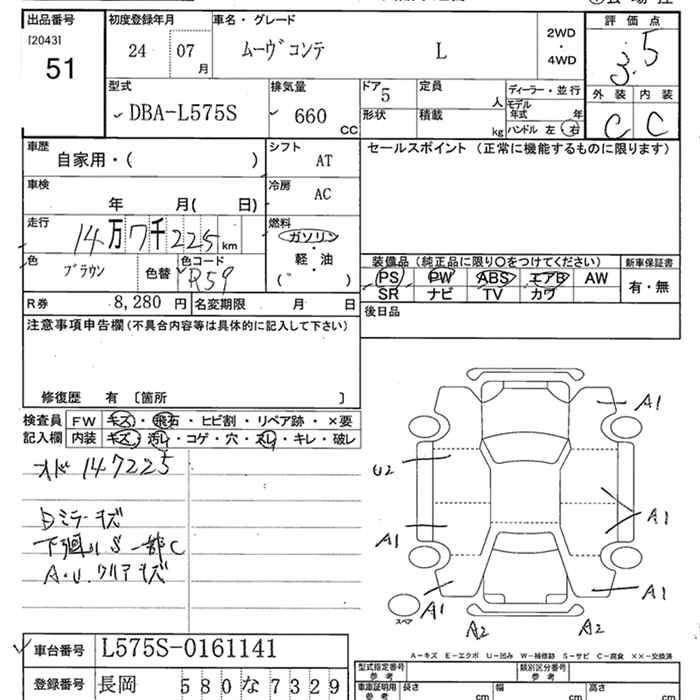 出品番号 初度登録年月 車名・グレード 評価点
[2043] 51 24 07 月 ムーヴコンテ L 2WD・4WD 3.5
外装 内装
C C
型式 排気量 ドア 定員 ディーラー・並行
DBA-L575S 660 CC 5 人 モデル年式 年
形状 積載 kg ハンドル 左 右
車歴 シフト セールスポイント (正常に機能するものに限ります)
自家用・( ) AT
車検 冷房
年 月( 日) AC
走行 燃料
14万7千225km ガソリン・軽・油
( )
色 色コード 装備品(純正品に限り〇をつけてください) 新車保証書
ブラウン 色替 R59 PS PW ABS エアB AW 有・無
SR ナビ TV カワ
R券 8,280 円 名変期限 月 日 後日品
注意事項申告欄(不具合内容等は具体的に記入して下さい)
修復歴 有 〔箇所 〕
検査員 FW キズ・飛石・ヒビ割・リペア跡・×要
記入欄 内装 キズ・汚れ・コゲ・穴・スレ・キレ・破レ
オド 147225
Dミラーキズ
下廻りS 一部C
A.U.クリアキズ
A1
U2
A1
A1
A1
A1
A2
A2
スペア
A-キズ E-エクボ U-凹み W-補修跡 S-サビ C-腐食 ××-交換済
車台番号 L575S-0161141 型式指定番号 参考 類別区分番号 参考
登録番号 長岡 580な7329 車庫証明用 参考 長さ cm 幅 cm 高さ cm